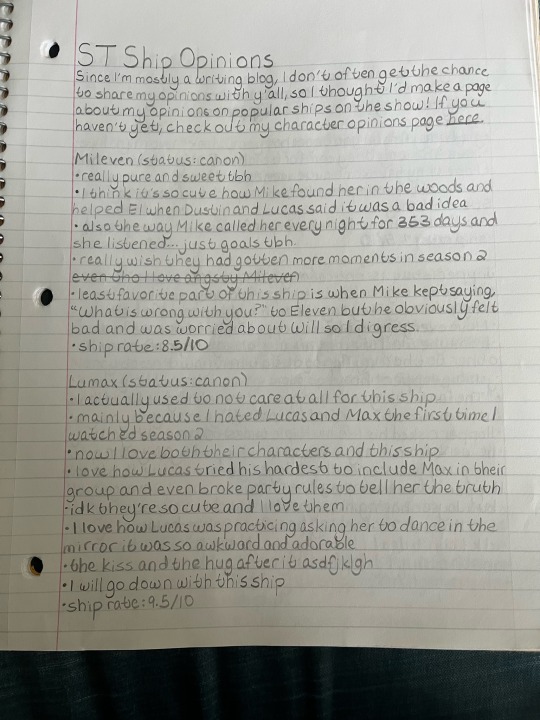 ST Ship Opinions
Since I'm mostly a writing blog, I don't often get the chance
to share my opinions with y'all, so I thought I'd make a page
about my opinions on popular ships on the show! If you
haven't yet, check out my character opinions page here.
Mileven (status: canon)
• really pure and sweet tbh
• I think it's so cute how Mike found her in the woods and
helped El when Dustin and Lucas said it was a bad idea
• also the way Mike called her every night for 353 days and
she listened... just goals tbh.
• really wish they had gotten more moments in season 2
even tho I love angsty Mileven
• least favorite part of this ship is when Mike kept saying,
"What is wrong with you?" to Eleven but he obviously felt
bad and was worried about will so I digress.
• ship rate: 8.5/10
Lumax (status: canon)
• I actually used to not care at all for this ship
• mainly because I hated Lucas and Max the first time I
watched season 2
• now I love both their characters and this ship
• love how Lucas tried his hardest to include Max in their
group and even broke party rules to tell her the truth
• idk they're so cute and I love them
• I love how Lucas was practicing asking her to dance in the
mirror it was so awkward and adorable
• the kiss and the hug after it asdfjklgh
• I will go down with this ship
• ship rate: 9.5/10